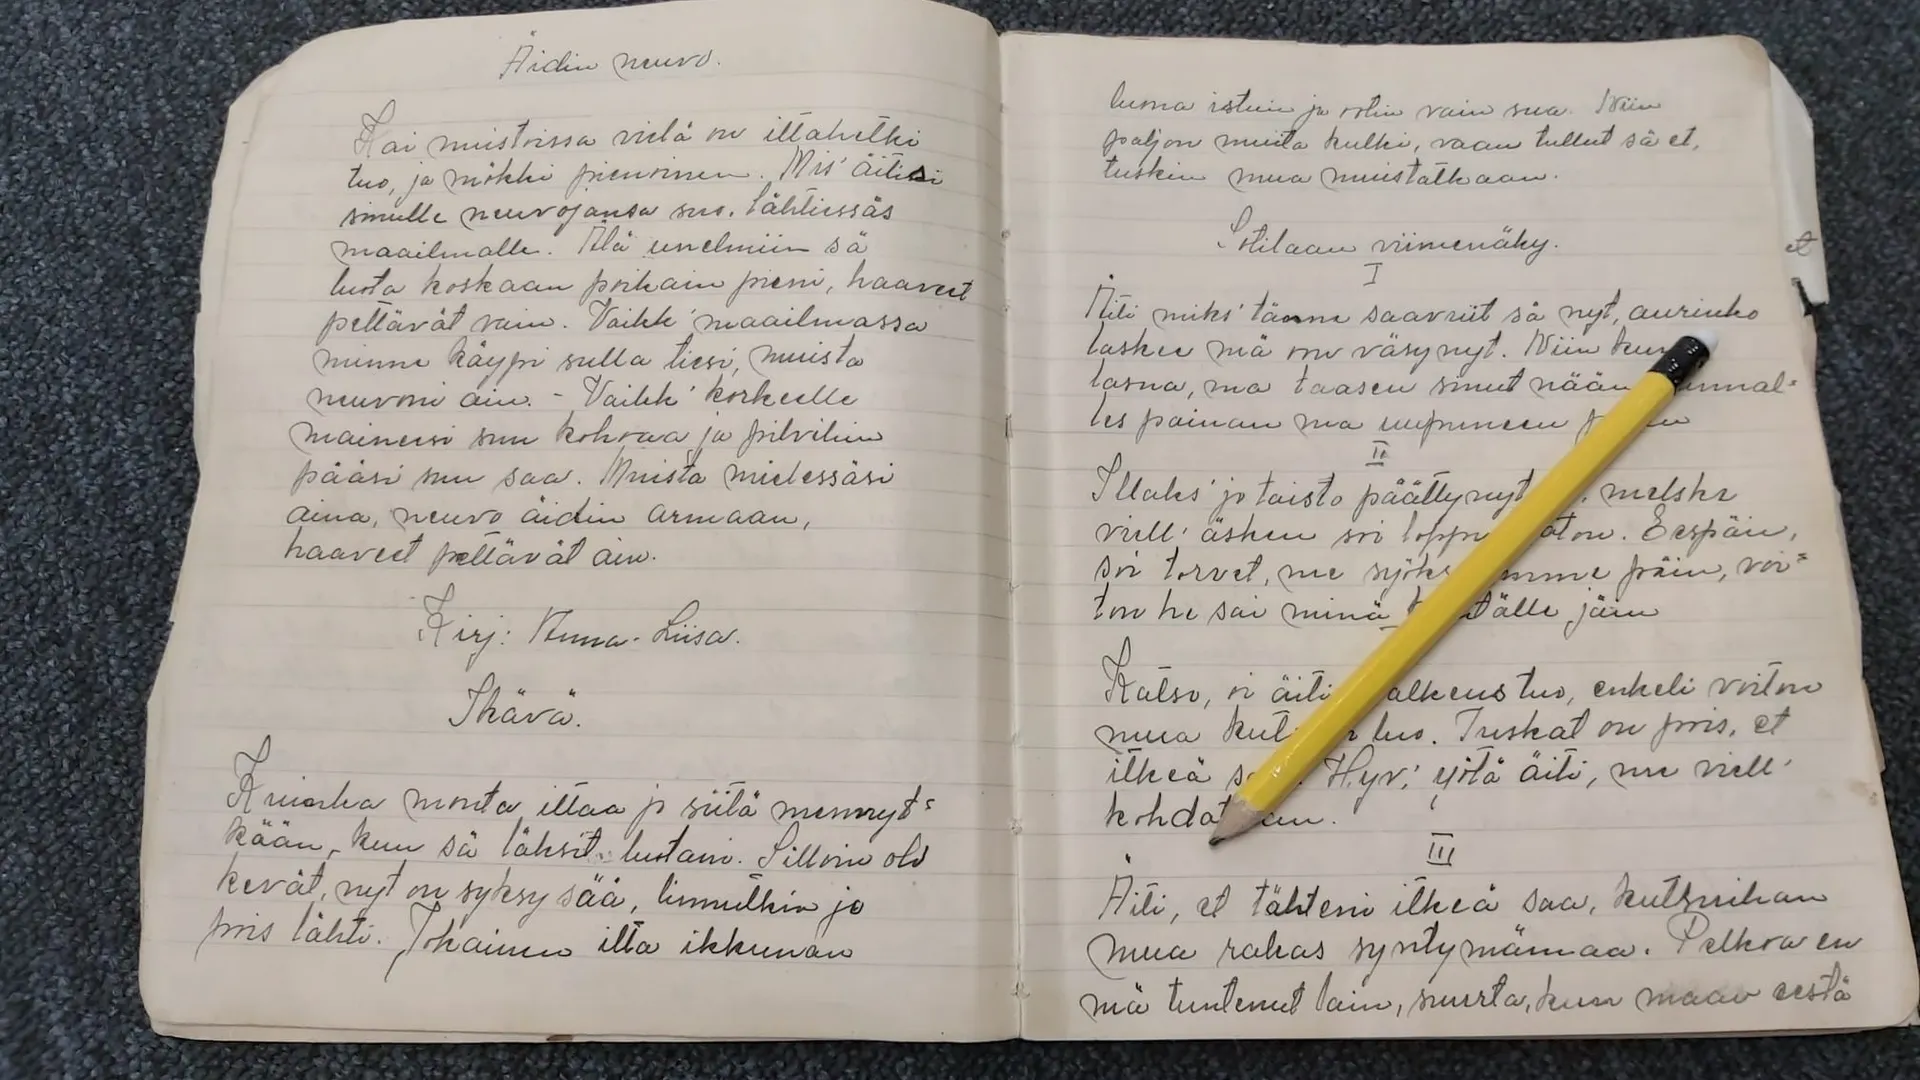 Äidin neuvo.
Kai muistoissa vielä on iltahetki
tuo, ja mökki pienoinen. Mis' äitisi
sinulle neuvojansa suo. lähtiessäs
maailmalle. Älä unelmiin sä
luota koskaan poikain pieni, haaveet
pettävät vain. Vaikk' maailmassa
minne käypi sulla tiesi, muista
neuvoni ain. - Vaikk' korkeelle
maineesi sun kohoaa ja pilvihin
pääsi sun saa. Muista mielessäsi
aina, neuvo äidin armaan,
haaveet pettävät ain.
Kirj: Anna-Liisa.
Ikävä.
Kuinka monta iltaa jo siitä mennyt=
kään, kun sä läksit luotani. Silloin oli
kevät, nyt on syksy sää, linnutkin jo
pois lähti. Jokainen ilta ikkunan
luona istuin ja ootin vain sua. Niin
paljon muita kulki, vaan tullut sä et,
tuskin mua muistatkaan.
Sotilaan viimenäky.
I
Äiti miks' tänne saavuit sä nyt, aurinko
laskee mä oon väsynyt. Niin kun
lasna, ma taasen sinut nään
les painan ma uupuneen
II
Illaks' jo taisto päättynyt melske
viell' äsken soi Eespäin,
soi torvet, me päin, voi=
ton he sai minä jäin
Katso, oi äiti tuo, enkeli voiton
mua luo. Tuskat on pois, et
itkeä Hyv: yötä äiti, me viell'
III
Äiti, et tähteni itkeä saa, kutsuihan
mua rakas syntymämaa. Pelkoa en
mä tuntenut lain, suurta, kun maan eestä
et